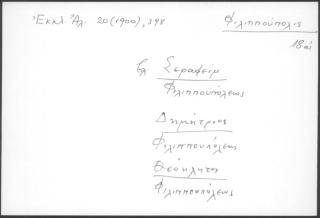 Ἐκκλ. Ἀλ. 20 (1900), 398
Φιλιππούπολις
18 αἰ
βλ. Σεραφείμ
Φιλιππουπόλεως
Δημήτριος
Φιλιππουπόλεως
Θεόκλητος
Φιλιππουπόλεως